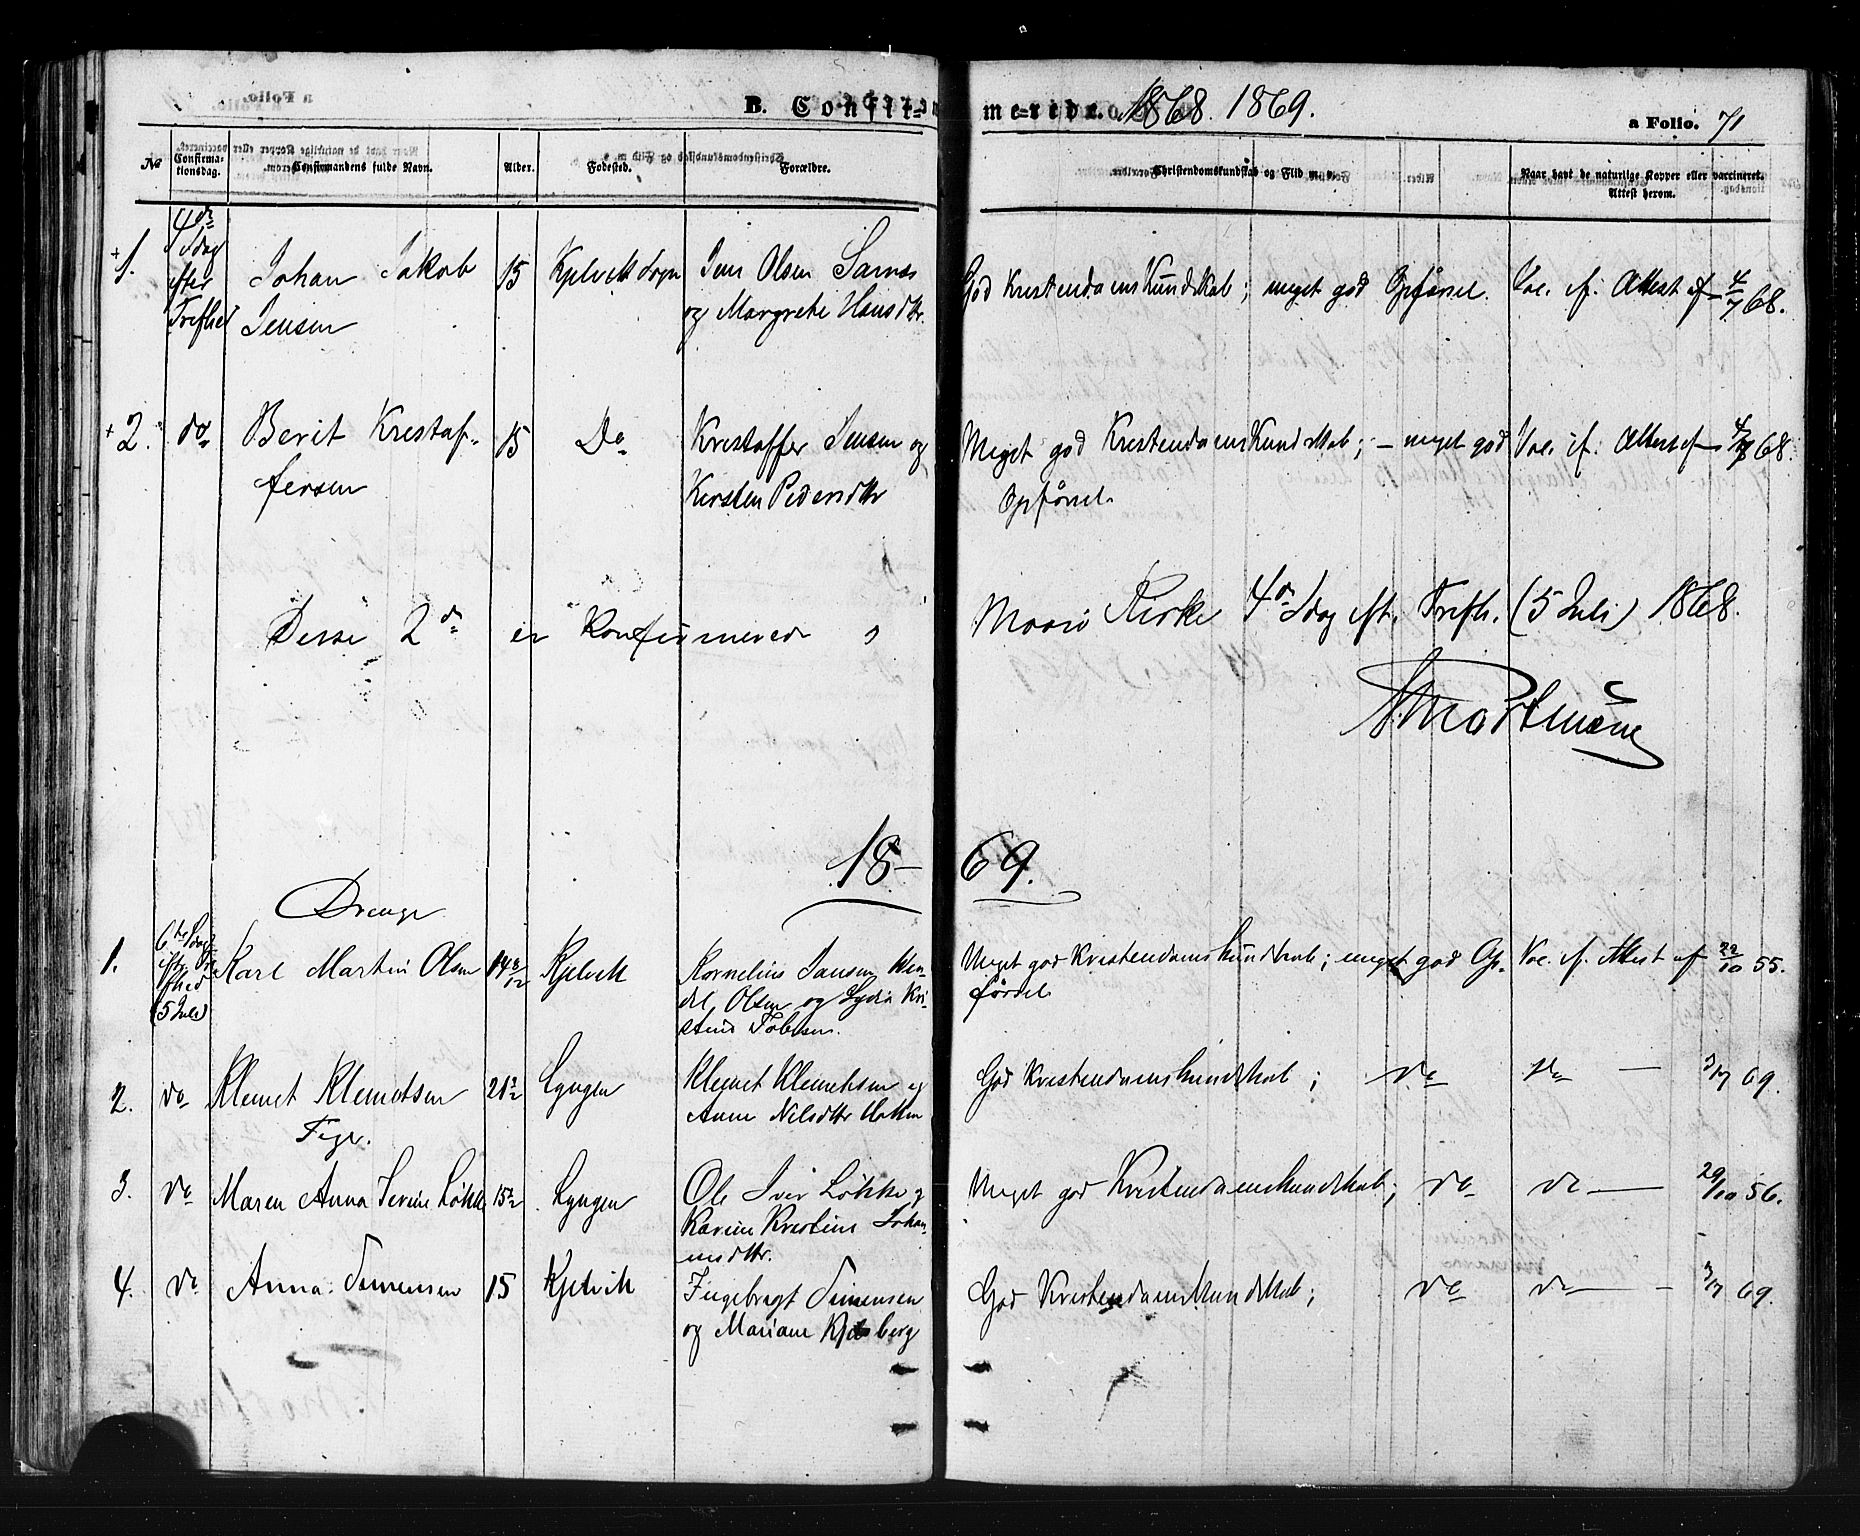 B. Confir=
merede. 1868. 1869.
a Folio. 71
No
Confirma-
tionsdag.
Confirmandens fulde Navn.
Alder.
Fødested.
Forældre.
Christendomskundskab og Flid m. v.
Naar havt de naturlige Kopper eller vaccineret.
Attest herom.
+1.
4de
Sdag
efter
Trefhed
Johan Jakob
Jensen
15
Kjelvik Sogn
Jens Olsen Sarnes
og Margrete Hansdtr.
God KrestendamsKundskab; meget god Opførsel.
Vac. if. Attest af 4/7 68.
+2.
do
Berit Krestaf-
fersen
15
Do
Krestaffer Jensen og
Kirsten Pedersdtr
Meget god KrestendamsKundskab; - meget god
Opførsel.
Vac. if. Attest af 4/7 68.
Desse 2de er konfirmerede i
Maasø Kirke 4de Sdag eft. Trefh. (5 Juli) 1868.
18-
69.
Drenge
1.
6te Sdag
efter Tre
fhed
(5 Juli)
Karl Martin Olsen
14 8/12
Kjelvik
Kornelius Jansen Hen-
drl. Olsen og Lydia Kri-
stine Tobesen.
Meget god Kvestendamskundskab; meget god Op-
førsel
Vac. if. Attest af 22/10 55.
2.
do
Klemet Klemetsen
21 1/2
Lyngen
Klemet Klemetsen og
Anne Nilsdtr
God Kvestendamskundskab; do
do — 3/7 69.
3.
do
Maren Anna Serine Løkke
15 1/2
Lyngen
Ole Iver Løkke og
Karine Krestine Johan
nesdtr.
Meget god Kvestendamskundskab; do
do — 29/10 56.
4.
do
Anna Simensen
15
Kjelvik
Ingebregt Simensen
og Mariane Kjelsberg
God Kvestendamskundskab; do
do — 3/7 69.